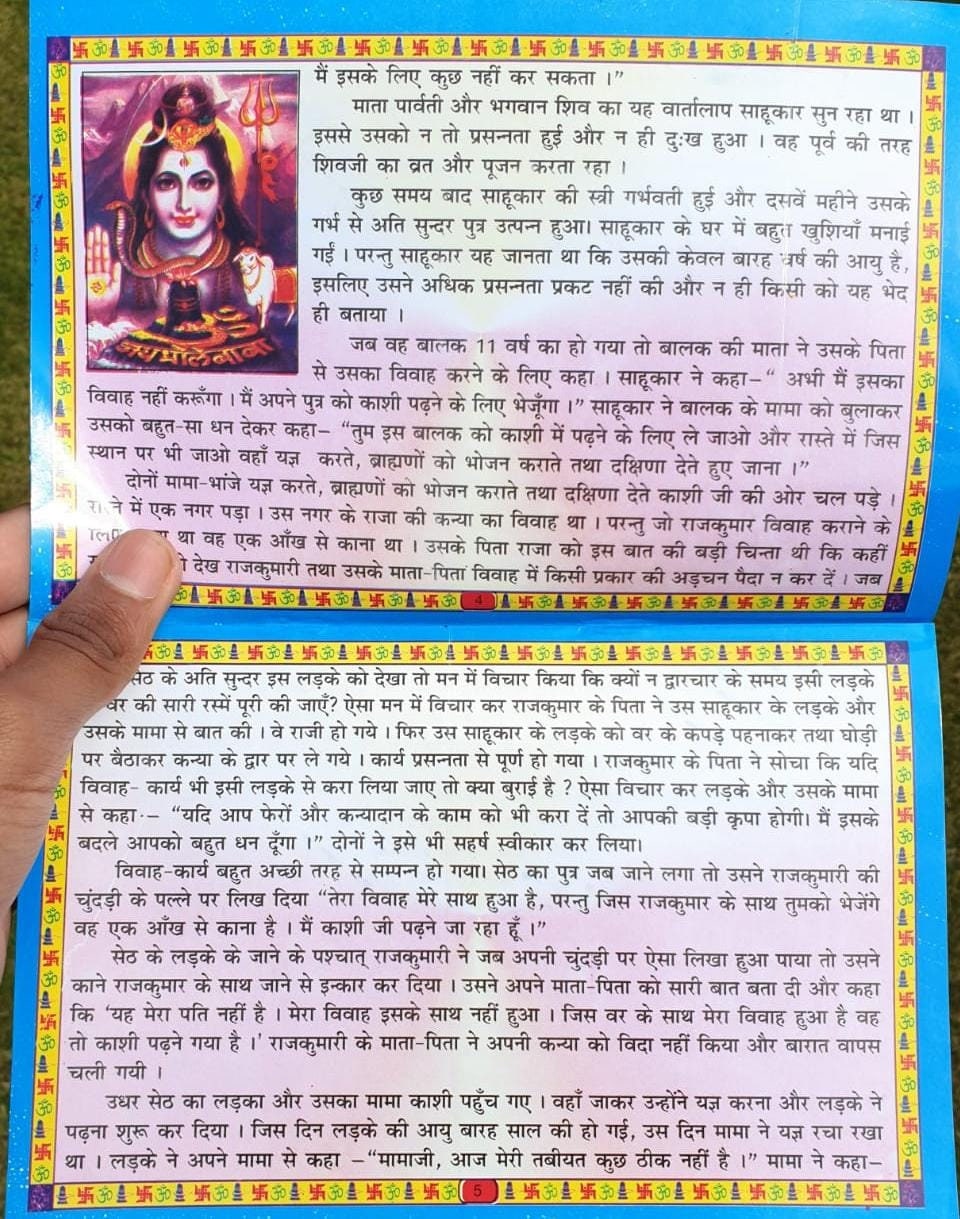 मैं इसके लिए कुछ नहीं कर सकता ।”
माता पार्वती और भगवान शिव का यह वार्तालाप साहूकार सुन रहा था ।
इससे उसको न तो प्रसन्नता हुई और न ही दुःख हुआ । वह पूर्व की तरह
शिवजी का व्रत और पूजन करता रहा ।
कुछ समय बाद साहूकार की स्त्री गर्भवती हुई और दसवें महीने उसके
गर्भ से अति सुन्दर पुत्र उत्पन्न हुआ। साहूकार के घर में बहुत खुशियाँ मनाई
गईं । परन्तु साहूकार यह जानता था कि उसकी केवल बारह वर्ष की आयु है,
इसलिए उसने अधिक प्रसन्नता प्रकट नहीं की और न ही किसी को यह भेद
ही बताया ।
जय भोले बाबा
जब वह बालक 11 वर्ष का हो गया तो बालक की माता ने उसके पिता
से उसका विवाह करने के लिए कहा । साहूकार ने कहा– “ अभी मैं इसका
विवाह नहीं करूँगा । मैं अपने पुत्र को काशी पढ़ने के लिए भेजूँगा ।” साहूकार ने बालक के मामा को बुलाकर
उसको बहुत-सा धन देकर कहा– “तुम इस बालक को काशी में पढ़ने के लिए ले जाओ और रास्ते में जिस
स्थान पर भी जाओ वहाँ यज्ञ करते, ब्राह्मणों को भोजन कराते तथा दक्षिणा देते हुए जाना ।”
दोनों मामा-भांजे यज्ञ करते, ब्राह्मणों को भोजन कराते तथा दक्षिणा देते काशी जी की ओर चल पड़े ।
में एक नगर पड़ा । उस नगर के राजा की कन्या का विवाह था । परन्तु जो राजकुमार विवाह कराने के
था वह एक आँख से काना था । उसके पिता राजा को इस बात की बड़ी चिन्ता थी कि कहीं
देख राजकुमारी तथा उसके माता-पिता विवाह में किसी प्रकार की अड़चन पैदा न कर दें । जब
4
सेठ के अति सुन्दर इस लड़के को देखा तो मन में विचार किया कि क्यों न द्वारचार के समय इसी लड़के
वर की सारी रस्में पूरी की जाएँ? ऐसा मन में विचार कर राजकुमार के पिता ने उस साहूकार के लड़के और
उसके मामा से बात की । वे राजी हो गये । फिर उस साहूकार के लड़के को वर के कपड़े पहनाकर तथा घोड़ी
पर बैठाकर कन्या के द्वार पर ले गये । कार्य प्रसन्नता से पूर्ण हो गया । राजकुमार के पिता ने सोचा कि यदि
विवाह- कार्य भी इसी लड़के से करा लिया जाए तो क्या बुराई है ? ऐसा विचार कर लड़के और उसके मामा
से कहा·– “यदि आप फेरों और कन्यादान के काम को भी करा दें तो आपकी बड़ी कृपा होगी। मैं इसके
बदले आपको बहुत धन दूँगा ।” दोनों ने इसे भी सहर्ष स्वीकार कर लिया।
विवाह-कार्य बहुत अच्छी तरह से सम्पन्न हो गया। सेठ का पुत्र जब जाने लगा तो उसने राजकुमारी की
चुंदड़ी के पल्ले पर लिख दिया “तेरा विवाह मेरे साथ हुआ है, परन्तु जिस राजकुमार के साथ तुमको भेजेंगे
वह एक आँख से काना है । मैं काशी जी पढ़ने जा रहा हूँ ।”
सेठ के लड़के के जाने के पश्चात् राजकुमारी ने जब अपनी चुंदड़ी पर ऐसा लिखा हुआ पाया तो उसने
काने राजकुमार के साथ जाने से इन्कार कर दिया । उसने अपने माता-पिता को सारी बात बता दी और कहा
कि ‘यह मेरा पति नहीं है । मेरा विवाह इसके साथ नहीं हुआ । जिस वर के साथ मेरा विवाह हुआ है वह
तो काशी पढ़ने गया है ।' राजकुमारी के माता-पिता ने अपनी कन्या को विदा नहीं किया और बारात वापस
चली गयी ।
उधर सेठ का लड़का और उसका मामा काशी पहुँच गए । वहाँ जाकर उन्होंने यज्ञ करना और लड़के ने
पढ़ना शुरू कर दिया । जिस दिन लड़के की आयु बारह साल की हो गई, उस दिन मामा ने यज्ञ रचा रखा
था । लड़के ने अपने मामा से कहा –“मामाजी, आज मेरी तबीयत कुछ ठीक नहीं है ।” मामा ने कहा–
5